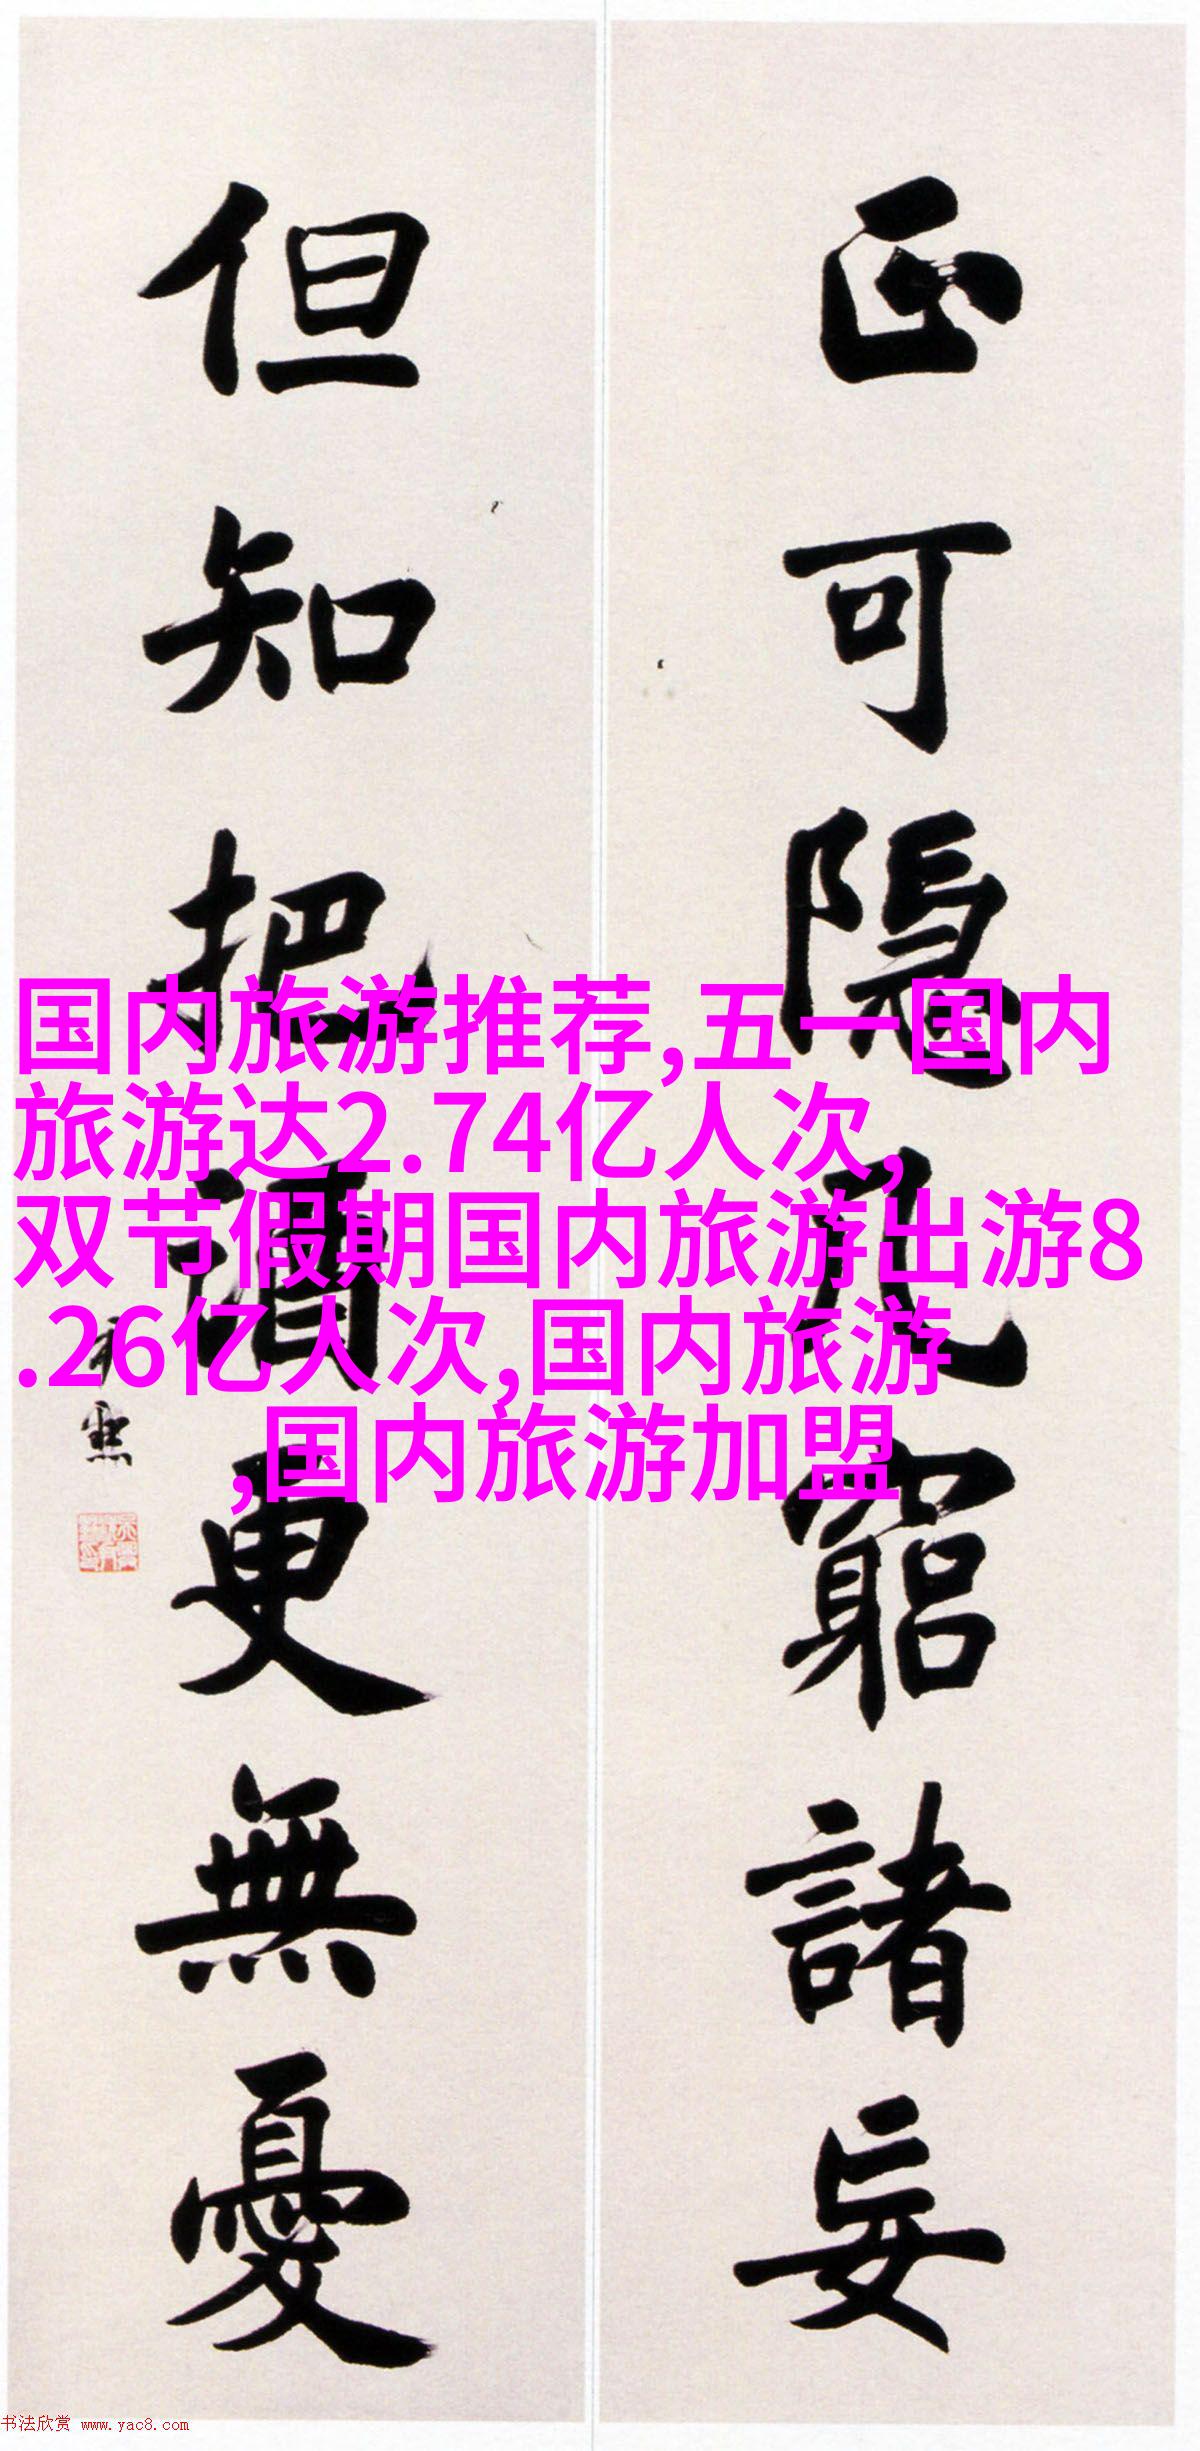 正可隱几窮諸妄
但知把酒更無憂
国内旅游推荐,五一国内
旅游达2.74亿人次,
双节假期国内旅游出游8
.26亿人次,国内旅游
,国内旅游加盟
书法欣赏 www.yac8.com